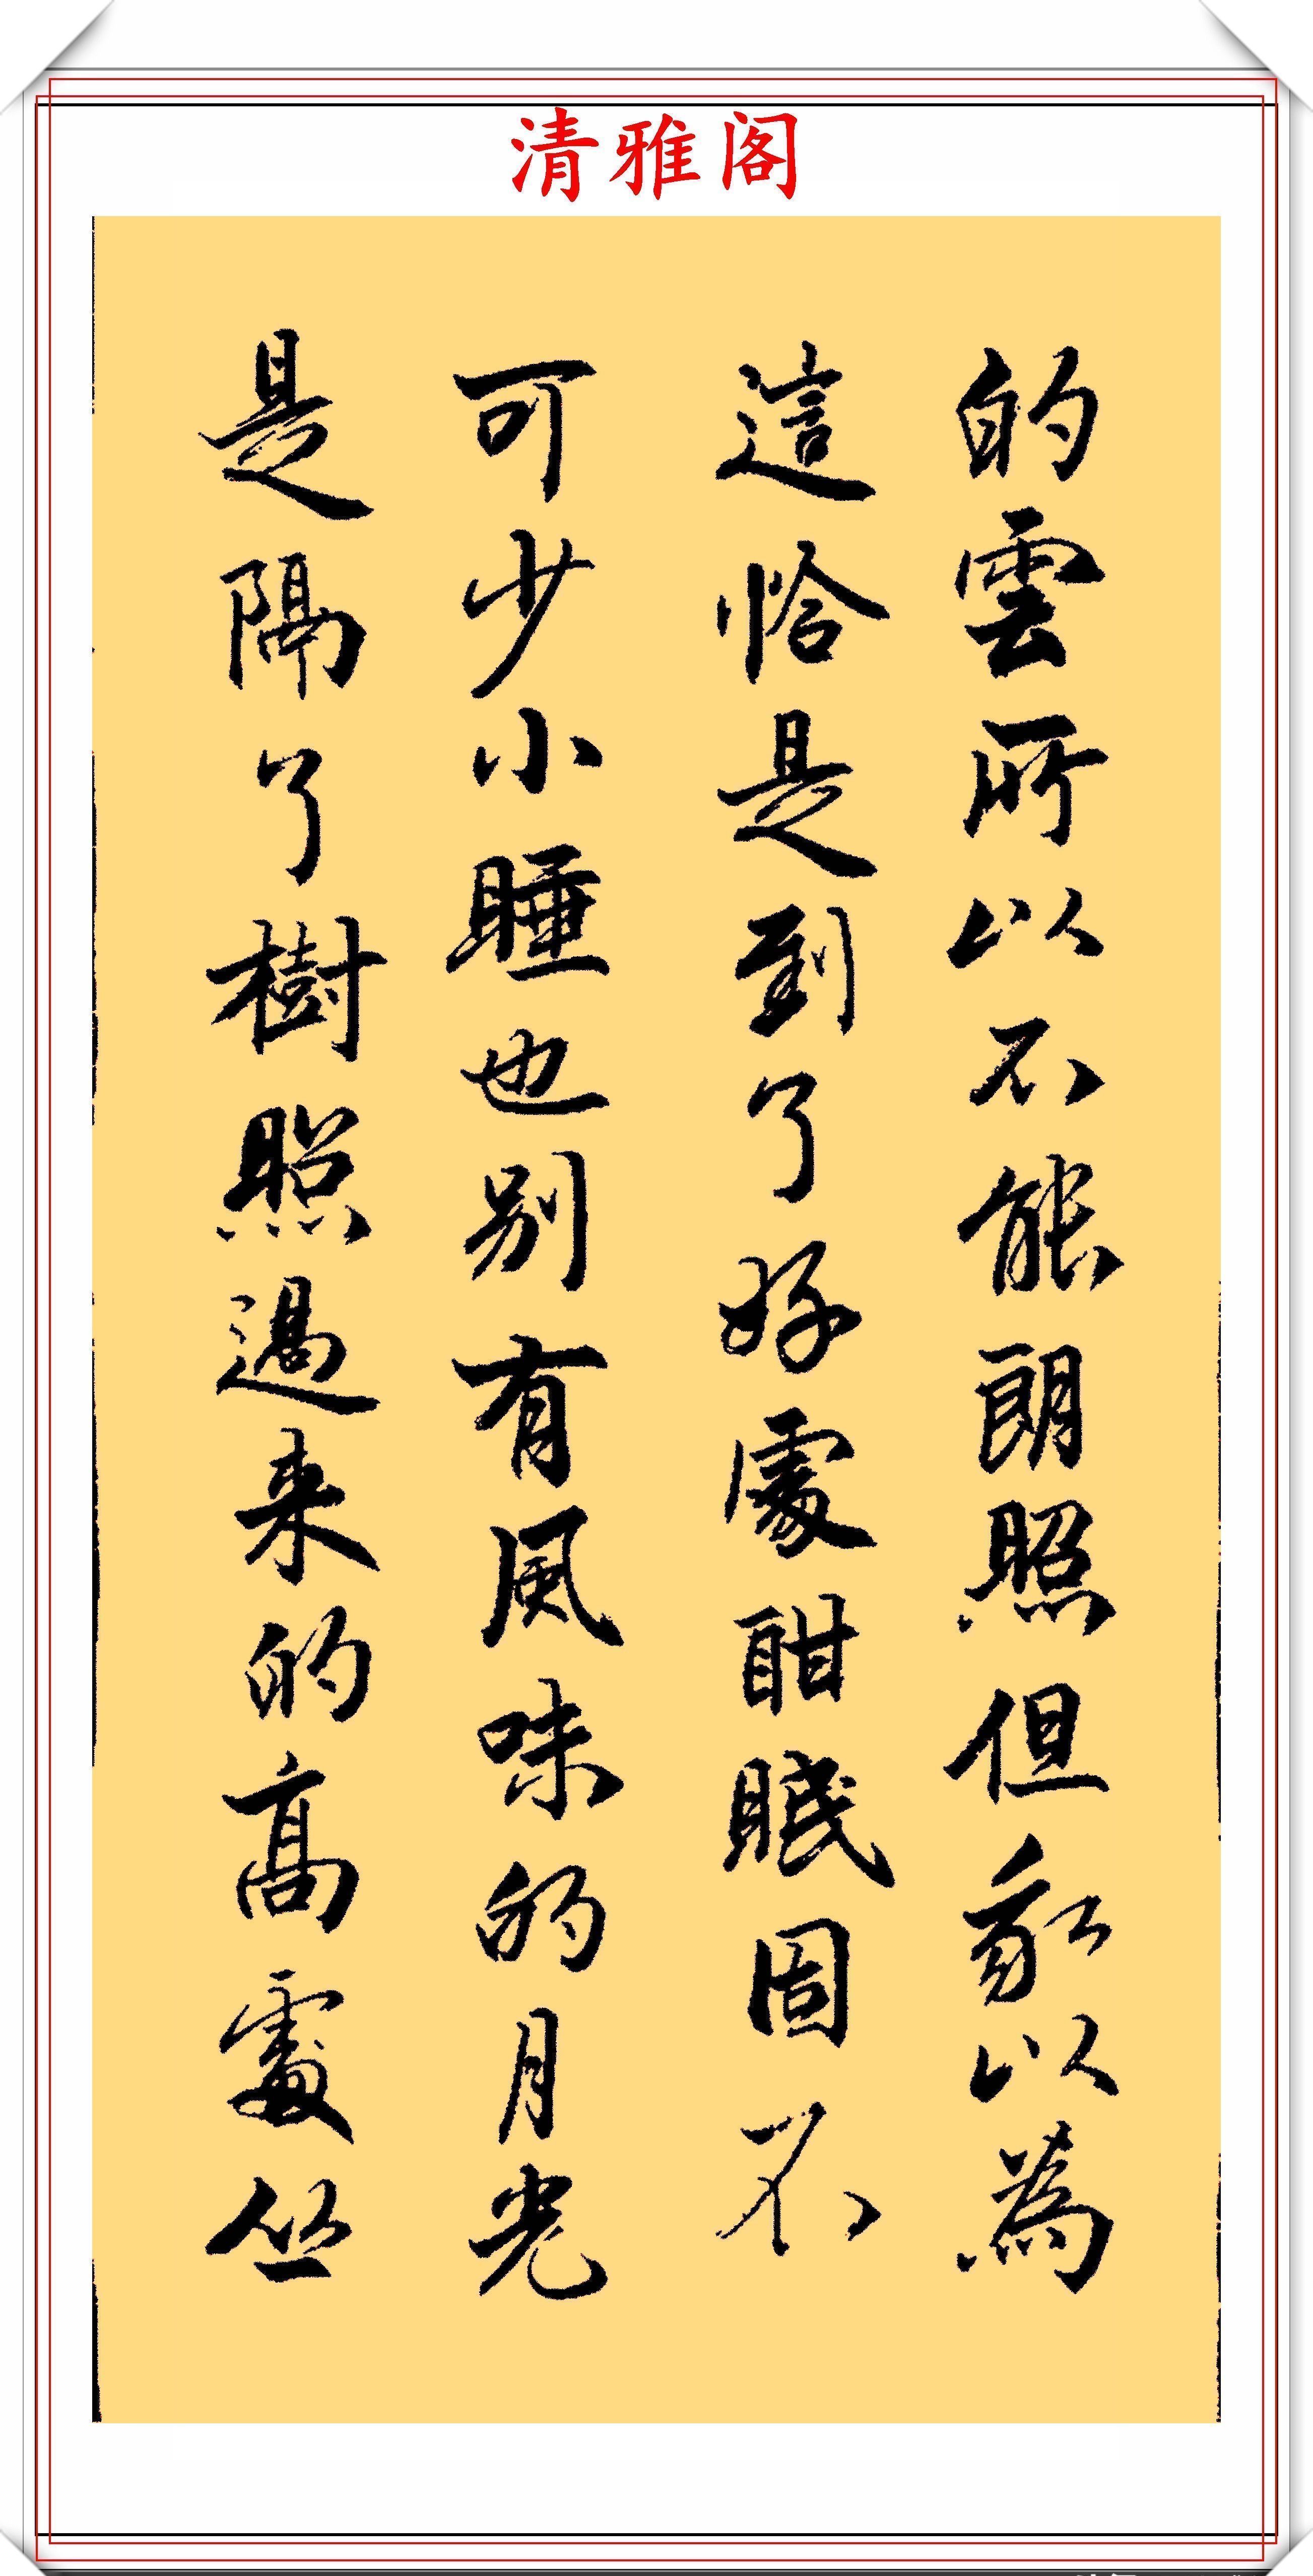 清雅阁
的雲所以不能朗照但我以為
這恰是到了好處酣眠固不
可少小睡也别有風味的月光
是隔了樹照過来的高處丛